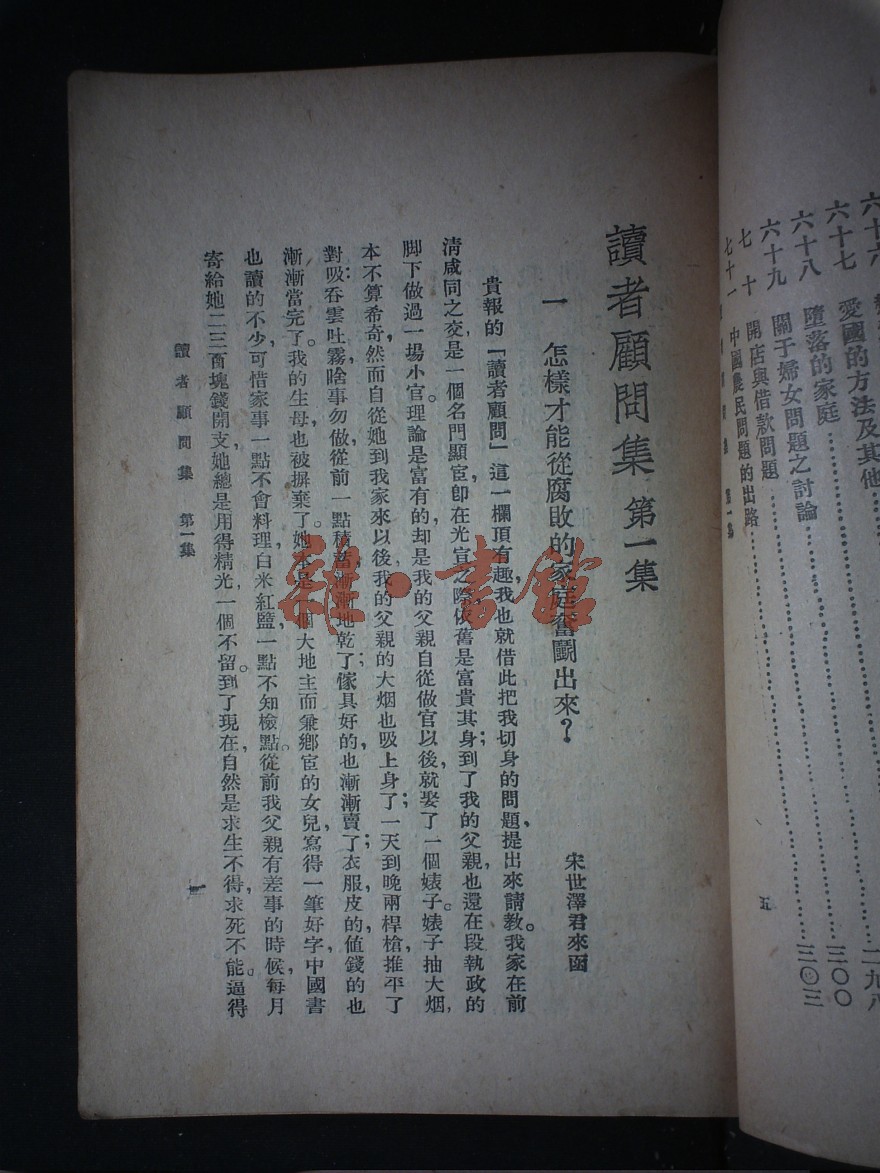 六十七 愛國的方法及其他……二九八
六十八 墮落的家庭……三〇〇
六十九 關于婦女問題之討論……三〇三
七十 開店與借款問題
七十一 中國農民問題的出路
第一集
五
讀者顧問集 第一集
一 怎樣才能從腐敗的家庭奮鬭出來?
宋世澤君來函
貴報的「讀者顧問」這一欄頂有趣,我也就借此把我切身的問題,提出來請教。我家在前
清咸同之交,是一個名門顯宦,卽在光宣之際,依舊是富貴其身;到了我的父親,也還在段執政的
脚下做過一場小官。理論是富有的,却是我的父親,自從做官以後,就娶了一個婊子。婊子抽大烟,
本不算希奇,然而自從她到我家來以後,我的父親的大烟也吸上身了;一天到晚,兩桿槍,推平了
對;吸吞雲吐霧,啥事勿做。從前一點積蓄,漸漸地乾了;傢具好的也漸漸賣了;衣服皮的値錢的也
漸漸當完了。我的生母也被摒棄了。她本是一個大地主而兼鄉宦的女兒,寫得一筆好字,中國書
也讀的不少,可惜家事一點不會料理,白米紅鹽,一點不知檢點。從前我父親有差事的時候,每月
寄給她二三百塊錢開支,她總是用得精光,一個不留。到了現在,自然是求生不得,求死不能。逼得
讀者顧問集 第一集
一
雜·書館